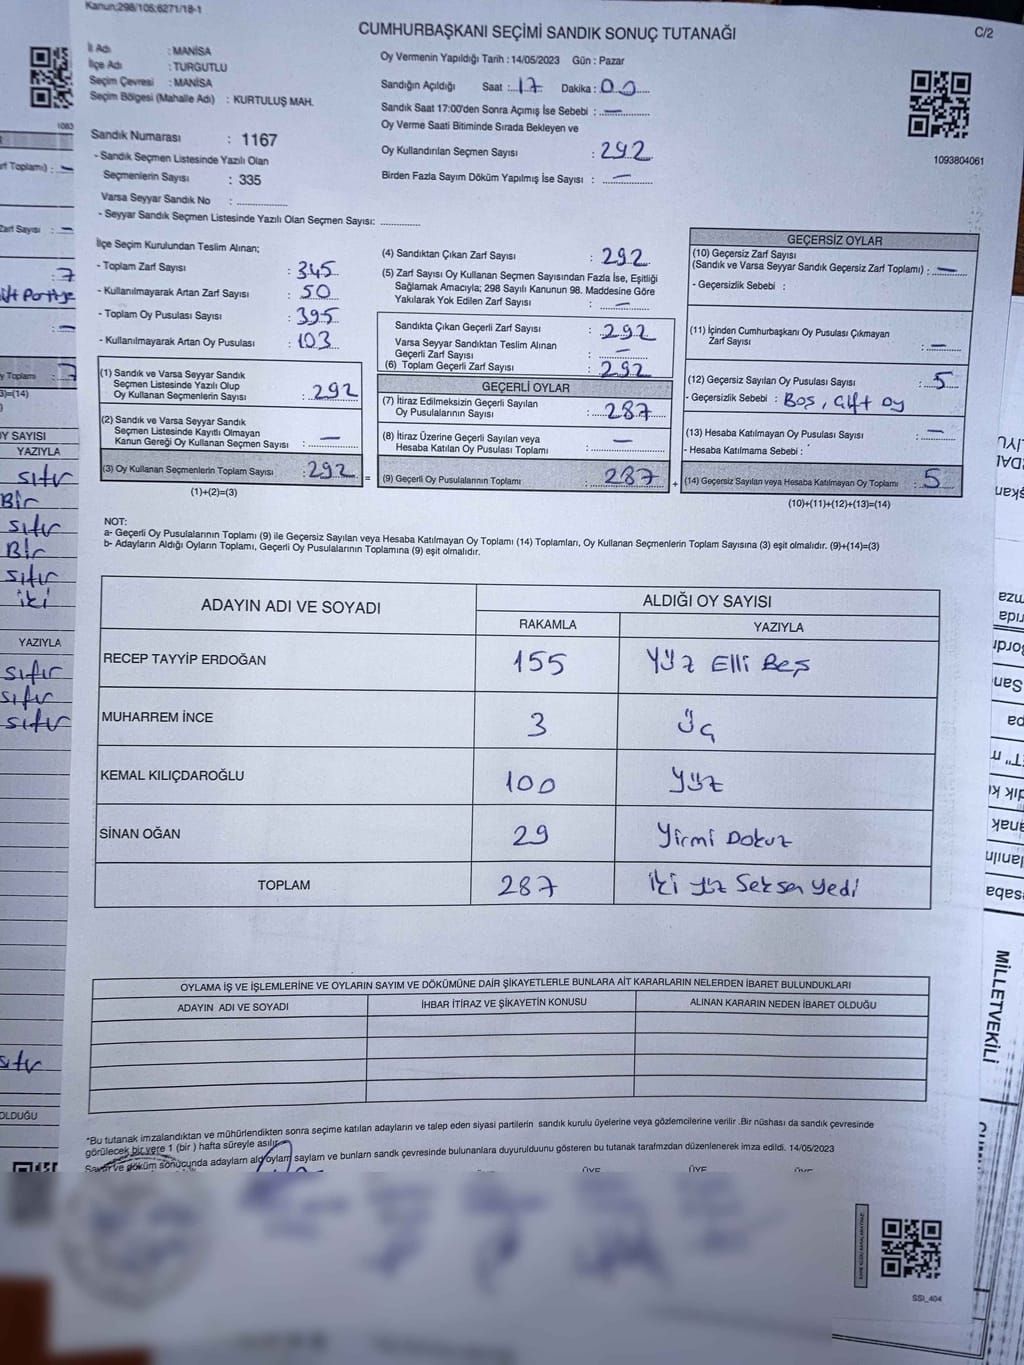 Kanun;298/105;6271/18-1
CUMHURBAŞKANI SEÇİMİ SANDIK SONUÇ TUTANAĞI
C/2
İl Adı : MANİSA
İlçe Adı : TURGUTLU
Seçim Çevresi : MANİSA
Seçim Bölgesi (Mahalle Adı) : KURTULUŞ MAH.
Sandık Numarası : 1167
- Sandık Seçmen Listesinde Yazılı Olan
Seçmenlerin Sayısı : 335
Varsa Seyyar Sandık No :
- Seyyar Sandık Seçmen Listesinde Yazılı Olan Seçmen Sayısı:
Oy Vermenin Yapıldığı Tarih : 14/05/2023 Gün : Pazar
Sandığın Açıldığı Saat : 17 Dakika : 00
Sandık Saat 17:00'den Sonra Açımış İse Sebebi : —
Oy Verme Saati Bitiminde Sırada Bekleyen ve
Oy Kullandırılan Seçmen Sayısı : 292
Birden Fazla Sayım Döküm Yapılmış İse Sayısı : —
1093804061
İlçe Seçim Kurulundan Teslim Alınan;
- Toplam Zarf Sayısı : 345
- Kullanılmayarak Artan Zarf Sayısı : 50
- Toplam Oy Pusulası Sayısı : 395
- Kullanılmayarak Artan Oy Pusulası : 103
(1) Sandık ve Varsa Seyyar Sandık
Seçmen Listesinde Yazılı Olup
Oy Kullanan Seçmenlerin Sayısı : 292
(2) Sandık ve Varsa Seyyar Sandık
Seçmen Listesinde Kayıtlı Olmayan
Kanun Gereği Oy Kullanan Seçmen Sayısı : —
(3) Oy Kullanan Seçmenlerin Toplam Sayısı : 292 =
(1)+(2)=(3)
(4) Sandıktan Çıkan Zarf Sayısı : 292
(5) Zarf Sayısı Oy Kullanan Seçmen Sayısından Fazla İse, Eşitliği
Sağlamak Amacıyla; 298 Sayılı Kanunun 98. Maddesine Göre
Yakılarak Yok Edilen Zarf Sayısı : —
Sandıkta Çıkan Geçerli Zarf Sayısı : 292
Varsa Seyyar Sandıktan Teslim Alınan
Geçerli Zarf Sayısı : —
(6) Toplam Geçerli Zarf Sayısı : 292
GEÇERLİ OYLAR
(7) İtiraz Edilmeksizin Geçerli Sayılan
Oy Pusulalarının Sayısı : 287
(8) İtiraz Üzerine Geçerli Sayılan veya
Hesaba Katılan Oy Pusulası Toplamı : —
(9) Geçerli Oy Pusulalarının Toplamı : 287 +
GEÇERSİZ OYLAR
(10) Geçersiz Zarf Sayısı
(Sandık ve Varsa Seyyar Sandık Geçersiz Zarf Toplamı) : —
- Geçersizlik Sebebi :
(11) İçinden Cumhurbaşkanı Oy Pusulası Çıkmayan
Zarf Sayısı : —
(12) Geçersiz Sayılan Oy Pusulası Sayısı : 5
- Geçersizlik Sebebi : Boş, Çift oy
(13) Hesaba Katılmayan Oy Pusulası Sayısı : —
- Hesaba Katılmama Sebebi :
(14) Geçersiz Sayılan veya Hesaba Katılmayan Oy Toplamı : 5
(10)+(11)+(12)+(13)=(14)
NOT:
a- Geçerli Oy Pusulalarının Toplamı (9) ile Geçersiz Sayılan veya Hesaba Katılmayan Oy Toplamı (14) Toplamları, Oy Kullanan Seçmenlerin Toplam Sayısına (3) eşit olmalıdır. (9)+(14)=(3)
b- Adayların Aldığı Oyların Toplamı, Geçerli Oy Pusulalarının Toplamına (9) eşit olmalıdır.
ADAYIN ADI VE SOYADI
ALDIĞI OY SAYISI
RAKAMLA YAZIYLA
RECEP TAYYİP ERDOĞAN 155 Yüz Elli Beş
MUHARREM İNCE 3 Üç
KEMAL KILIÇDAROĞLU 100 Yüz
SİNAN OĞAN 29 Yirmi Dokuz
TOPLAM 287 İki yüz Seksen Yedi
OYLAMA İŞ VE İŞLEMLERİNE VE OYLARIN SAYIM VE DÖKÜMÜNE DAİR ŞİKAYETLERLE BUNLARA AİT KARARLARIN NELERDEN İBARET BULUNDUKLARI
ADAYIN ADI VE SOYADI İHBAR İTİRAZ VE ŞİKAYETİN KONUSU ALINAN KARARIN NEDEN İBARET OLDUĞU
*Bu tutanak imzalandıktan ve mühürlendikten sonra seçime katılan adayların ve talep eden siyasi partilerin sandık kurulu üyelerine veya gözlemcilerine verilir .Bir nüshası da sandık çevresinde
görülecek bir yere 1 (bir ) hafta süreyle asılır.
Sayım ve döküm sonucunda adayların aldığı oyların sayıları ve bunların sandık çevresinde bulunanlara duyurulduunu gösteren bu tutanak tarafımzdan düzenlenerek imza edildi. 14/05/2023
ÜYE ÜYE ÜYE
SSİ_404
1083
f Toplamı) : —
Zarf Sayısı : —
: 7
: —
y Toplamı : 7
3)=(14)
Y SAYISI
YAZIYLA
sıfır
Bir
sıfır
Bir
sıfır
iki
YAZIYLA
sıfır
sıfır
sıfır
sıfır
OLDUĞU
MİLLETVEKİLİ